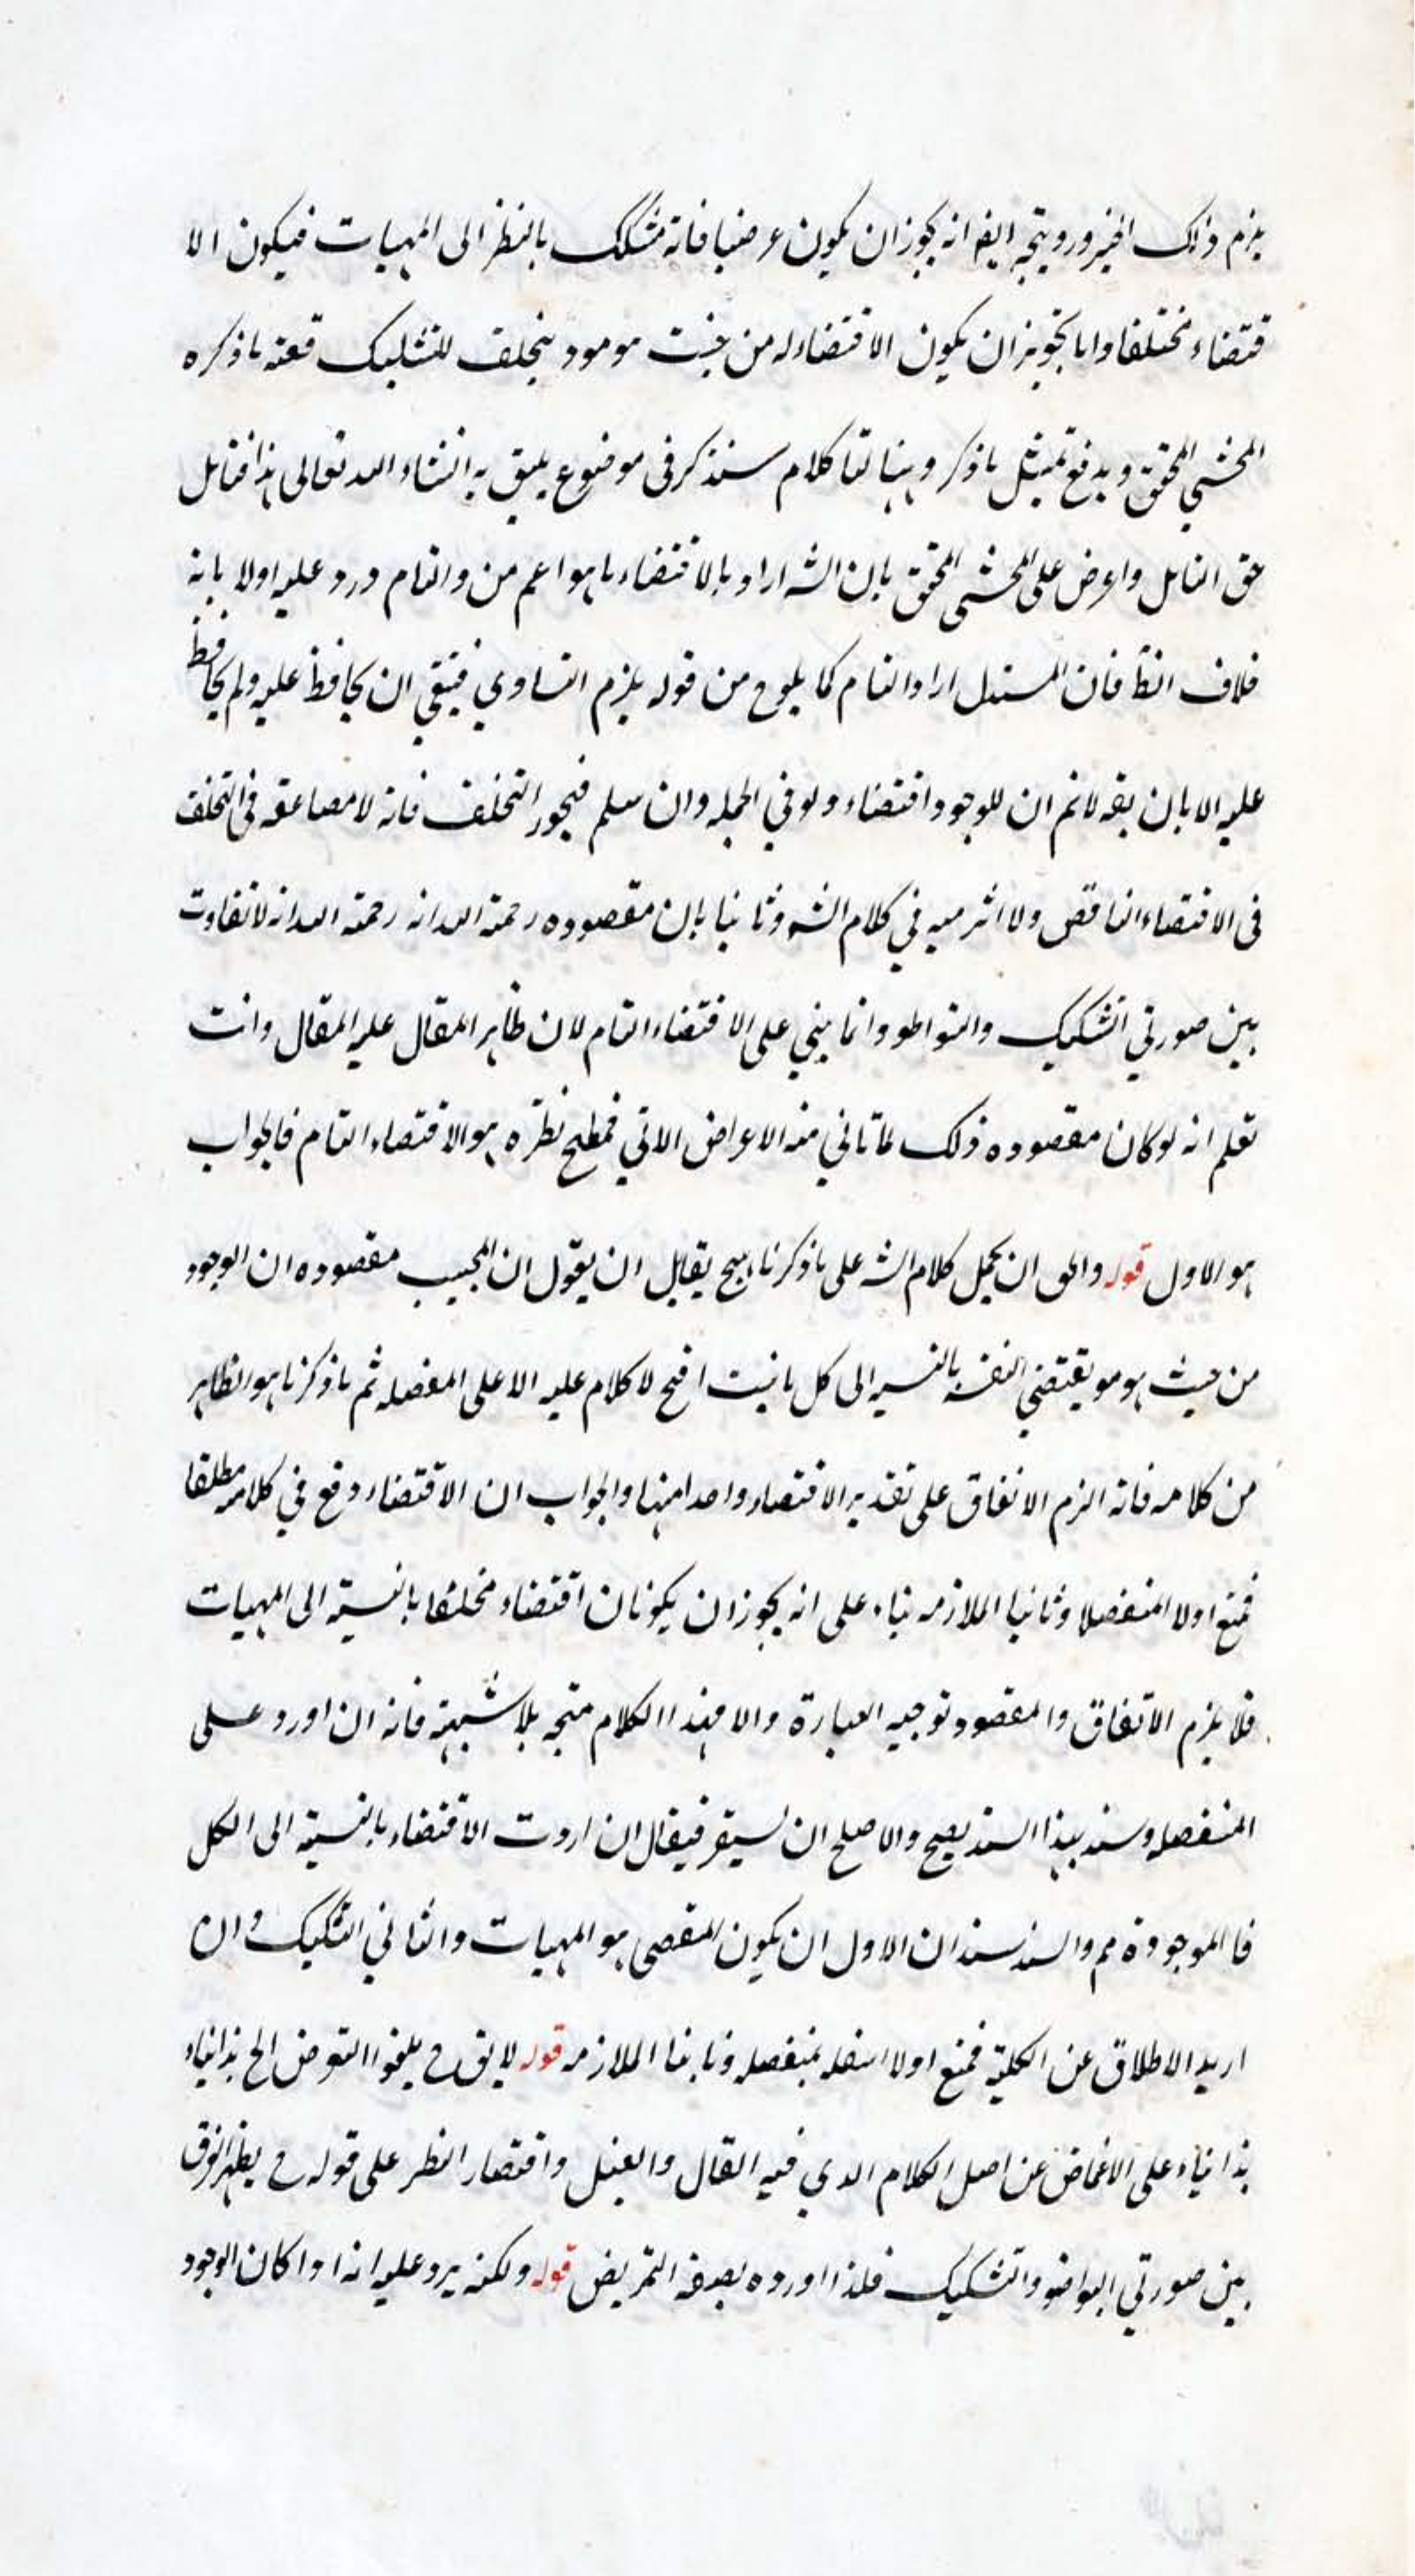 يلزم ذلك الخير ورويتجه ايضا انه يجوز ان يكون عرضيا فانه مشكك بالنظر الى المهيات فيكون الا
قتضاء مختلفا واما تجويز ان يكون الاقتضاء له من حيث هو هو د يتخلف للتشكيك فعنه ما ذكره
المحشي المحقق ويدفع تمثيل ما ذكر وههنا لنا كلام سنذكر في موضوع يليق به انشاء الله تعالى هذا فتامل
حق التامل واعرض على المحشي المحقق بان الشه اراد بالاقتضاء ما هو اعم من والتام ورد عليه اولا بانه
خلاف الظ فان المستدل اراد التام كما يلوح من قوله يلزم التساوي فينبغي ان يحافظ عليه ولم يحافظ
عليه الا بان يقه لانم ان للوجود اقتضاء ولو في الجمله وان سلم فيجوز التخلف فانه لا مضايقه في التخلف
في الاقتضاء الناقص ولا اثر ميه في كلام الشه وثانيا بان مقصوده رحمة الله انه رحمة الله انه لا تفاوت
بين صورتي التشكيك والتواطوء وانما يبني على الاقتضاء التام لان ظاهر المقال عليه المقال وانت
تعلم انه لو كان مقصوده ذلك لما تاتي منه الاعراض الاتي فمطمح نظره هو الاقتضاء التام فالجواب
هو الاول قوله والحق ان يحمل كلام الشه على ما ذكرنا يقابل ان يقول ان المجيب مقصوده ان الوجود
من حيث هو هو يقتضي بالنسبه الى كل لا كلام عليه الا على المفصله ثم ما ذكرنا هو الظاهر
من كلامه فانه الزم الاتفاق على تقدير الاقتضاء واحدا منها والجواب ان الاقتضاء وقع في كلامه مطلقا
فمنع اولا المنفصلا وثانيا الملازمه بناء على انه يجوز ان يكونان اقتضاء مختلفا بالنسبة الى المهيات
فلا يلزم الاتفاق والمقصود توجيه العبارة والا فهذا الكلام متجه بلا شبهة فانه ان اورد على
المنفصله وسند بهذا السند يصح والاصلح ان يستفسر فيقال ان اردت الاقتضاء بالنسبة الى الكل
فا الموجودة مم والسند سندان الاول ان يكون المقتضى هو المهيات والثاني التشكيك وان
اريد الاطلاق عن الكلية فمنع اولا بمنفصله وثانيا الملازمه قوله لا يق ح يلغوا التعرض الخ هذا بناء
هذا بناء على الاغماض عن اصل الكلام الذي فيه القال والقيل واقتصار النظر على قوله ح يظهر الفرق
بين صورتي التواطؤ والتشكيك فلذا اورده بصيغة التمريض قوله ولكنه يرد عليه انه اذا كان الوجود